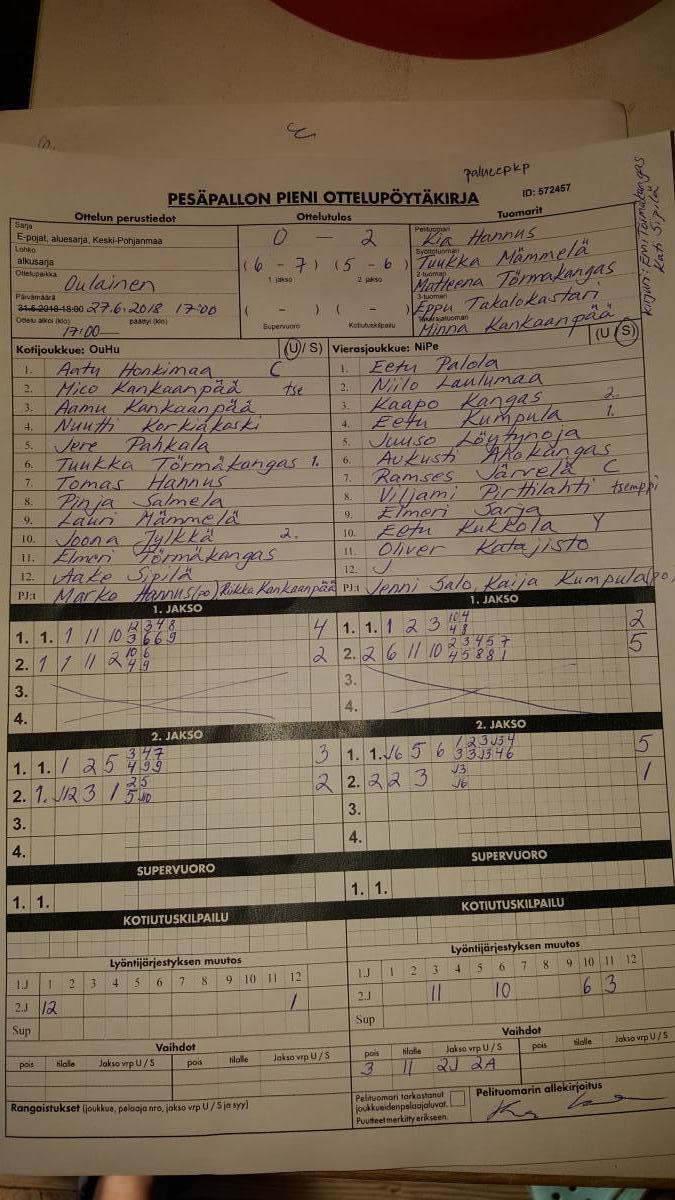 palucepkp
PESÄPALLON PIENI OTTELUPÖYTÄKIRJA
ID: 572457
Kirjuri: Emi Törmäkangas
Kati Sipilä
Ottelun perustiedot
Ottelutulos
Tuomarit
Sarja
E-pojat, aluesarja, Keski-Pohjanmaa
Lohko
alkusarja
Ottelupaikka
Oulainen
Päivämäärä
31.5.2018 18:00 27.6.2018 17:00
Ottelu alkoi (klo) päättyi (klo)
17:00
0 — 2
(6 - 7) (5 - 6)
1. jakso 2. jakso
( - ) ( - )
Supervuoro Kotiutuskilpailu
Pelituomari
Kia Hannus
Syöttötuomari
Tuukka Mämmelä
2-tuomari
Matleena Törmäkangas
3-tuomari
Eppu Takalokastari
Takarajatuomari
Minna Kankaanpää
Kotijoukkue: OuHu (U/ S)
1. Aatu Honkimaa C
2. Mico Kankaanpää tse
3. Aamu Kankaanpää
4. Nuutti Korkiakoski
5. Jere Pahkala
6. Tuukka Törmäkangas 1.
7. Tomas Hannus
8. Pinja Salmela
9. Lauri Mämmelä
10. Joona Jylkkä 2.
11. Elmeri Törmäkangas
12. Aake Sipilä
PJ:t Marko Hannus (po) Riikka Kankaanpää
Vierasjoukkue: NiPe (U / S)
1. Eetu Palola
2. Niilo Laulumaa
3. Kaapo Kangas 2.
4. Eetu Kumpula 1.
5. Juuso Löytynoja
6. Aukusti Ahokangas
7. Ramses Järvelä C
8. Viljami Pirttilahti tsemppi
9. Elmeri Sarja
10. Eetu Kukkola Y
11. Oliver Katajisto
12. J
PJ:t Jenni Salo, Kaija Kumpula (po)
1. JAKSO
1. 1. 1 11 10 12 3 4 8 4
3 6 6 9
2. 1 1 11 2 10 6 2
4 9
3.
4.
1. JAKSO
1. 1. 1 2 3 10 4 2
4 8
2. 2 6 11 10 2 3 4 5 7 5
4 5 8 8 1
3.
4.
2. JAKSO
1. 1. 1 2 5 3 4 7 3
4 9 9
2. 1. J12 3 1 2 5 2
5 J10
3.
4.
2. JAKSO
1. 1. J6 5 6 1 2 3 J3 4 5
3 3 J3 4 6
2. 2 2 3 J3 1
J6
3.
4.
SUPERVUORO
1. 1.
SUPERVUORO
1. 1.
KOTIUTUSKILPAILU
KOTIUTUSKILPAILU
Lyöntijärjestyksen muutos
1.J 1 2 3 4 5 6 7 8 9 10 11 12
2.J 12 1
Sup
Lyöntijärjestyksen muutos
1.J 1 2 3 4 5 6 7 8 9 10 11 12
2.J 11 10 6 3
Sup
Vaihdot
pois tilalle Jakso vrp U / S pois tilalle Jakso vrp U / S
Vaihdot
pois tilalle Jakso vrp U / S pois tilalle Jakso vrp U / S
3 11 2J 2A
Rangaistukset (joukkue, pelaaja nro, jakso vrp U / S ja syy)
Pelituomari tarkastanut
joukkueiden pelaajaluvat.
Puutteet merkitty erikseen.
Pelituomarin allekirjoitus